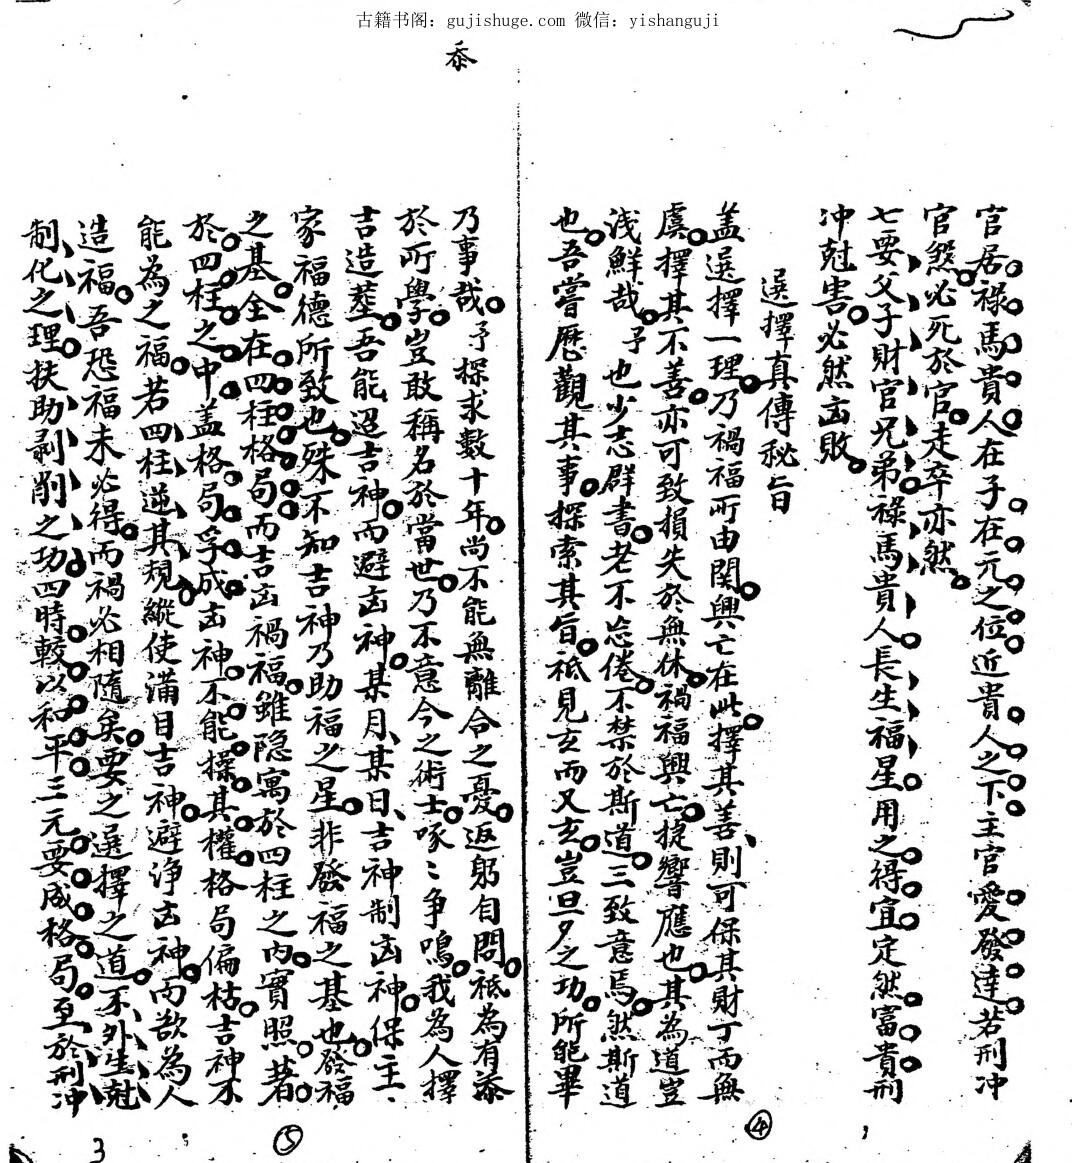 古籍书阁：gujishuge.com 微信：yishanguji
忝
官居祿馬貴人在子在元之位近貴人之下主官愛發達若刑冲
官煞必死於官走卒亦然
七要父子財官兄弟祿馬貴人長生福星用之得宜定然富貴刑
冲尅害必然凶敗
選擇真傳秘旨
盖選擇一理乃禍福所由関興亡在此擇其善則可保其財丁而無
虞擇其不善亦可致損失於無休禍福興亡捷響應也其為道豈
浅鮮哉予也少志群書老不忘倦不禁於斯道三致意焉然斯道
也吾嘗歷觀其事探索其旨祗見玄而又玄豈旦夕之功所能畢
乃事哉予探求數十年尚不能無離合之憂返躬自問祗為有忝
於所學豈敢稱名於當世乃不意今之術士啄々争鳴我為人擇
吉造塟吾能迢吉神而避凶神某月某日吉神制凶神保主
家福德所致也殊不知吉神乃助福之星非發福之基也發福
之基全在四柱格局而吉凶禍福雖隐寓於四柱之内實照著
於四柱之中盖格局孚成凶神不能操其權格局偏枯吉神不
能為之福若四柱逆其規縱使滿目吉神避净凶神而欲為人
造福吾恐福未必得而禍必相隨矣要之選擇之道不外生尅
制化之理扶助剥削之功四時較以和平三元要成格局至於刑冲
④
⑤
3